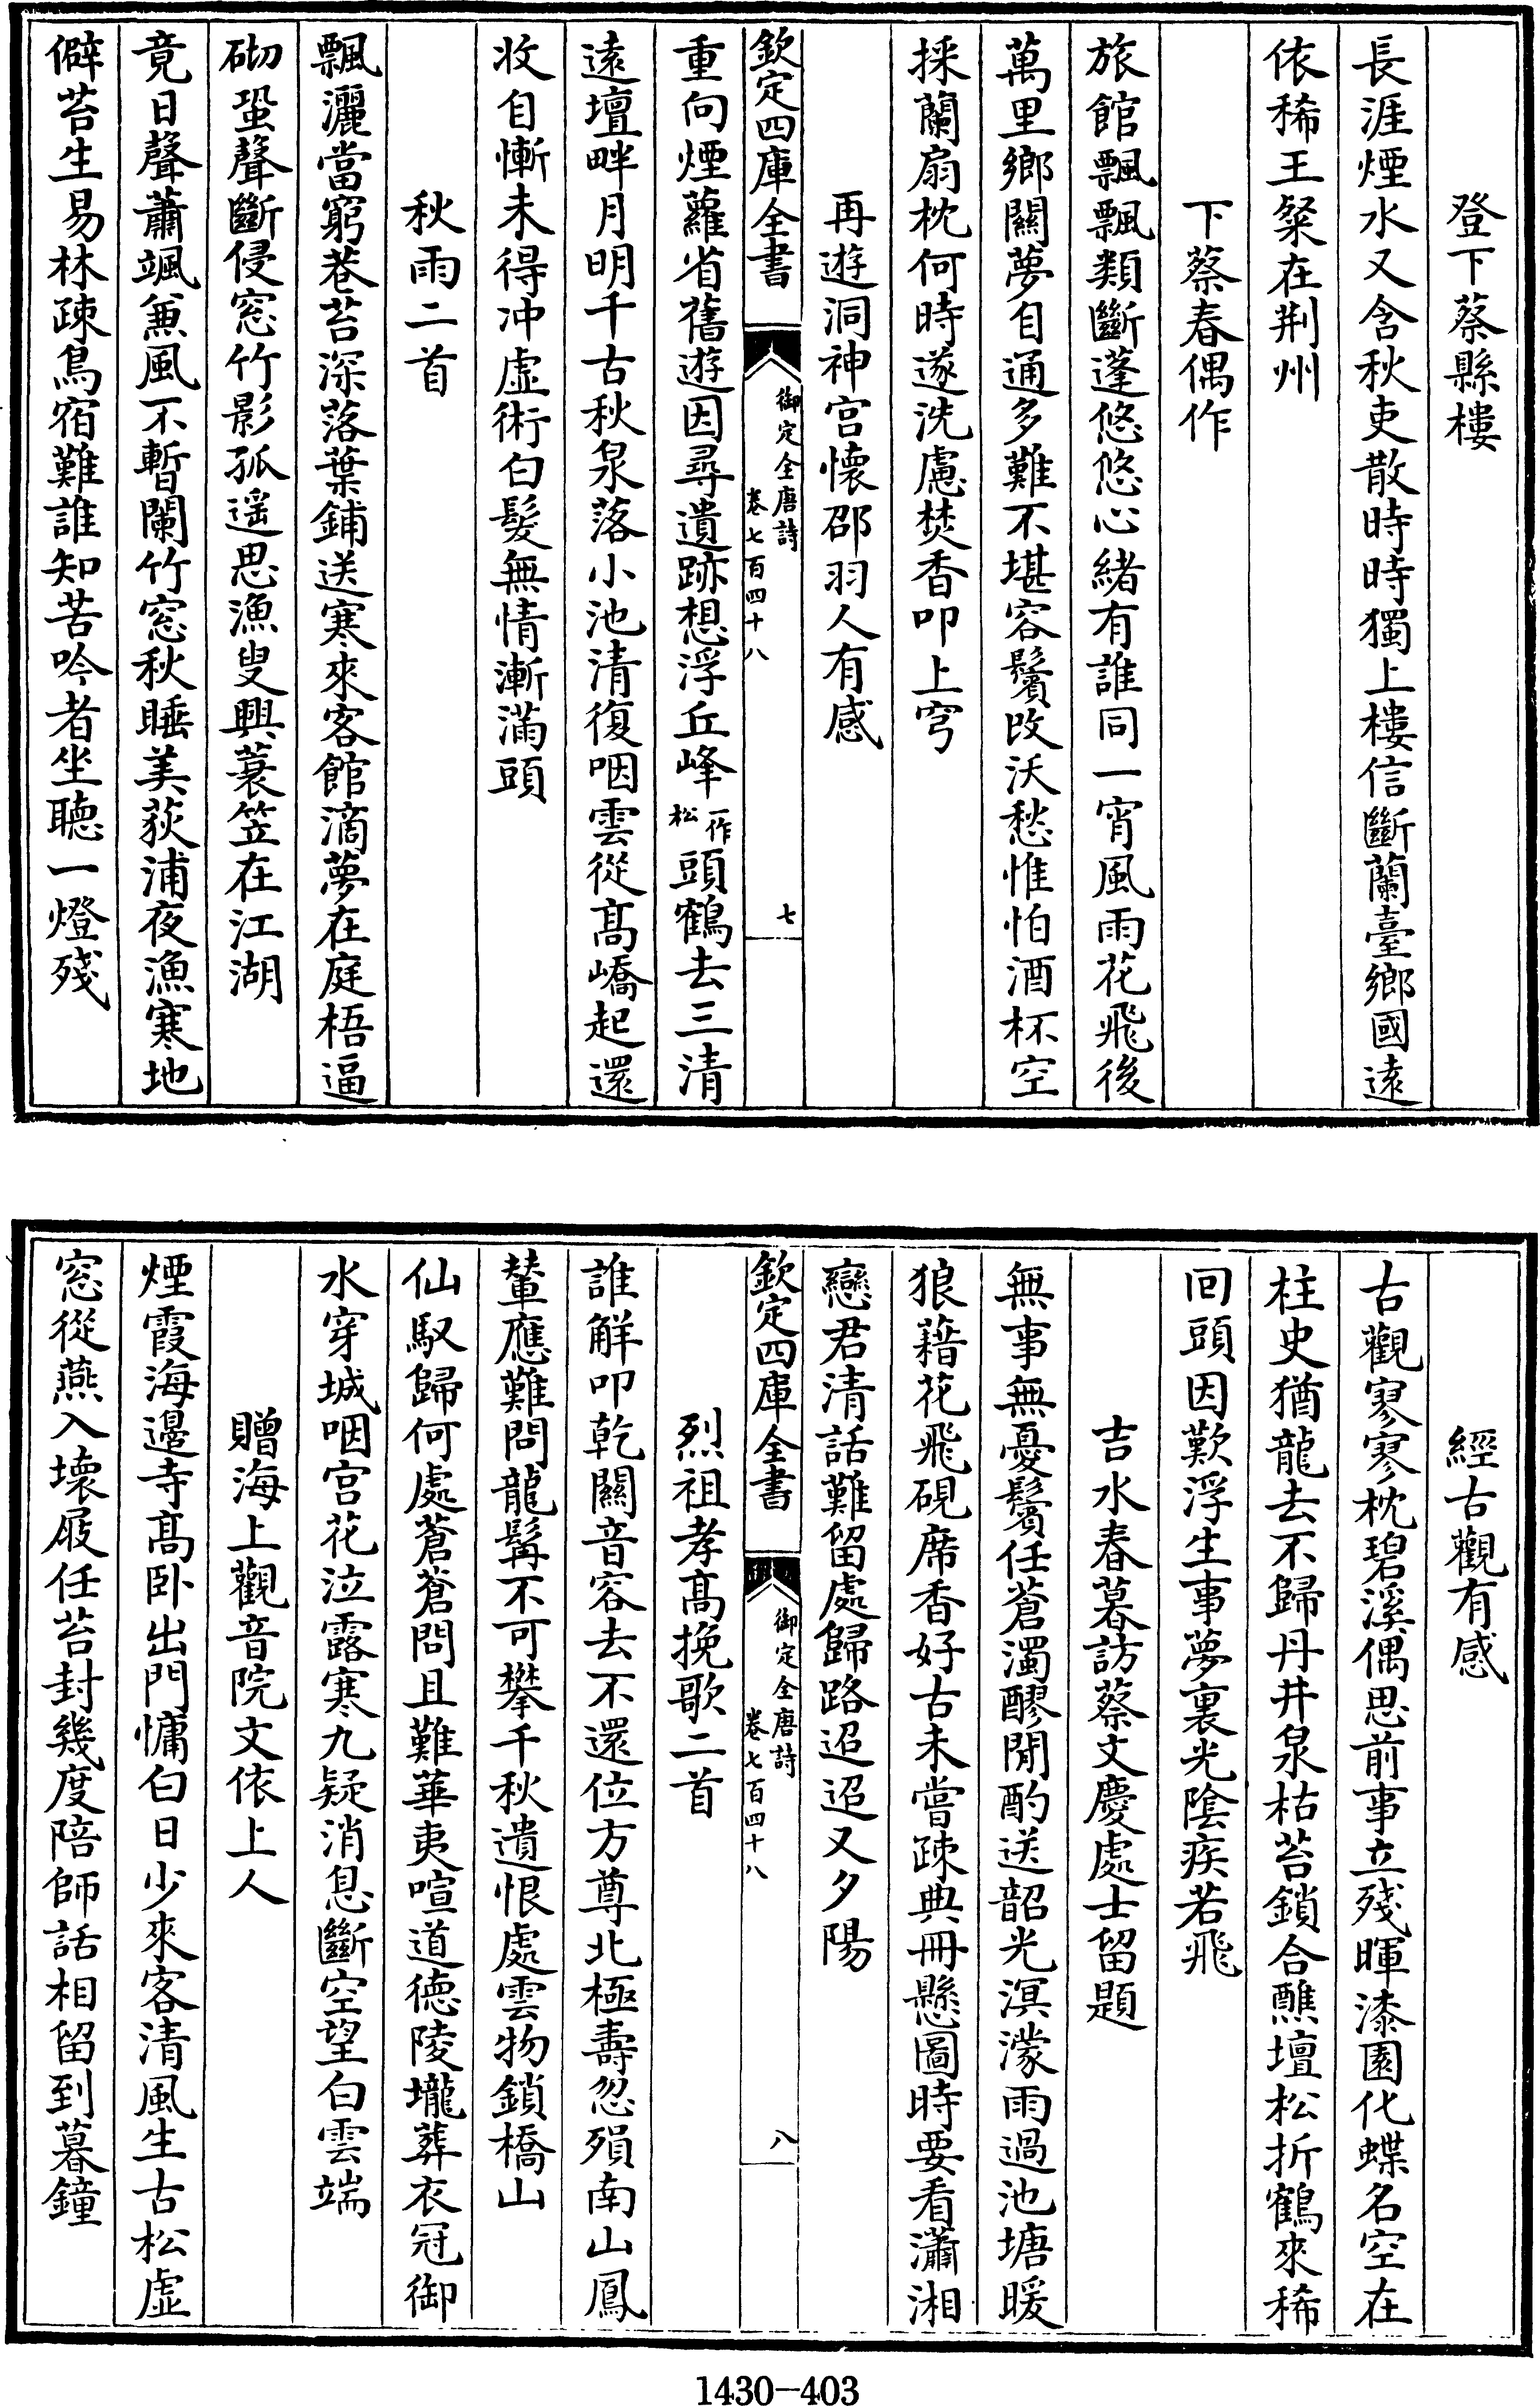 登下蔡縣樓
長涯煙水又含秋吏散時時獨上樓信斷蘭臺鄉國遠
依稀王粲在荆州
下蔡春偶作
旅館飄飄類斷蓬悠悠心緒有誰同一宵風雨花飛後
萬里鄉關夢自通多難不堪容鬢改沃愁惟怕酒杯空
採蘭扇枕何時遂洗慮焚香叩上穹
再遊洞神宫懷邵羽人有感
欽定四庫全書
御定全唐詩
卷七百四十八
七
重向煙蘿省舊遊因尋遺跡想浮丘峰一作松頭鶴去三清
遠壇畔月明千古秋泉落小池清復咽雲從髙嶠起還
收自慚未得冲虛術白髮無情漸滿頭
秋雨二首
飄灑當窮巷苔深落葉鋪送寒來客館滴夢在庭梧逼
砌蛩聲斷侵窓竹影孤遥思漁叟興蓑笠在江湖
竟日聲蕭颯兼風不暫闌竹窓秋睡美荻浦夜漁寒地
僻苔生易林疎鳥宿難誰知苦吟者坐聽一燈殘
經古觀有感
古觀寥寥枕碧溪偶思前事立殘暉漆園化蝶名空在
柱史猶龍去不歸丹井泉枯苔鎖合醮壇松折鶴來稀
回頭因歎浮生事夢裏光陰疾若飛
吉水春暮訪蔡文慶處士留題
無事無憂鬢任蒼濁醪閒酌送韶光溟濛雨過池塘暖
狼藉花飛硯席香好古未嘗疎典冊懸圖時要看瀟湘
戀君清話難留處歸路迢迢又夕陽
欽定四庫全書
御定全唐詩
卷七百四十八
八
烈祖孝髙挽歌二首
誰解叩乾關音容去不還位方尊北極壽忽殞南山鳳
輦應難問龍髯不可攀千秋遺恨處雲物鎖橋山
仙馭歸何處蒼蒼問且難華夷喧道德陵壠葬衣冠御
水穿城咽宫花泣露寒九疑消息斷空望白雲端
贈海上觀音院文依上人
煙霞海邊寺髙卧出門慵白日少來客清風生古松虛
窓從燕入壞屐任苔封幾度陪師話相留到暮鐘
1430-403